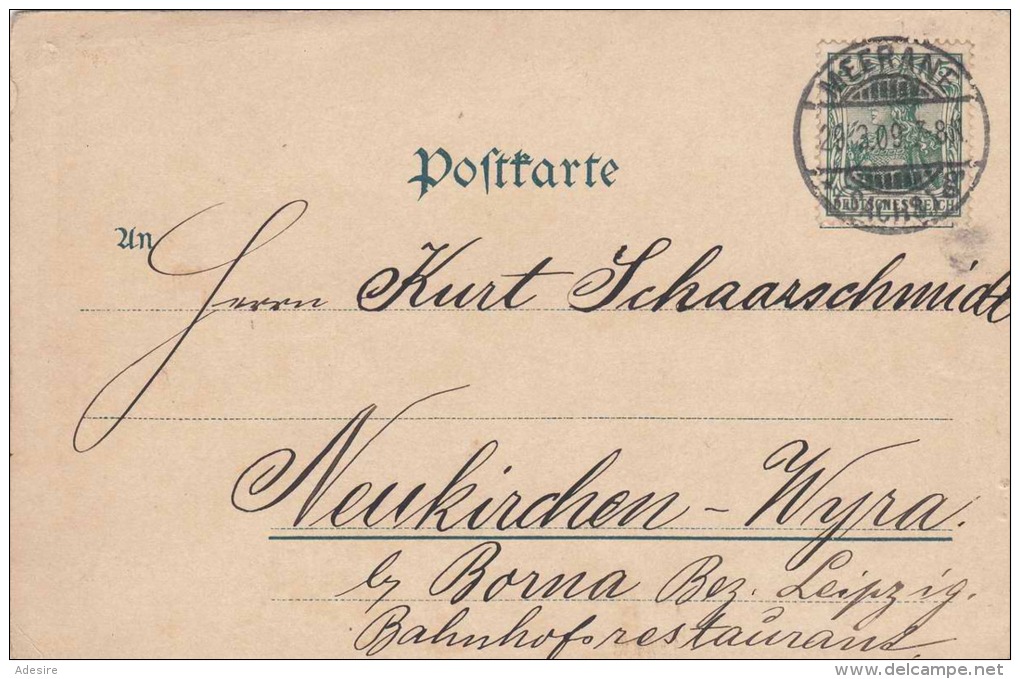 Postkarte
MEERANE
29.3.09. 7-8N.
DEUTSCHES REICH
An
Herrn Kurt Schaarschmidt
Neukirchen - Wyra.
b/ Borna Bez. Leipzig.
Bahnhofsrestaurant.
Adesire
www.delcampe.net